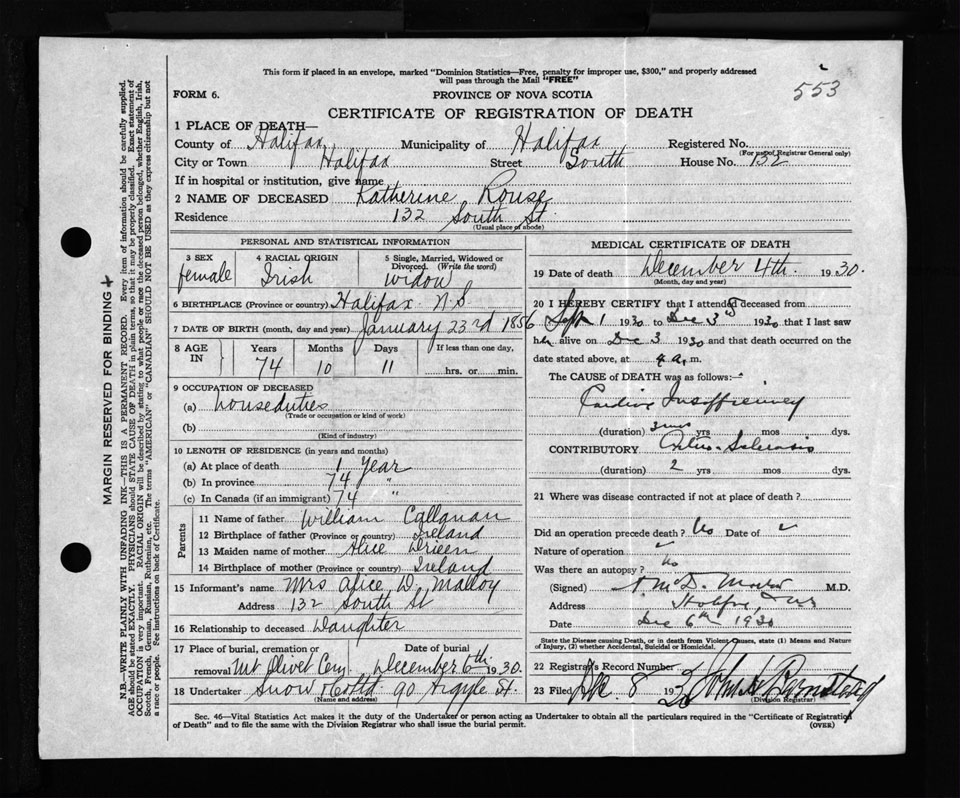 This form if placed in an envelope, marked "Dominion Statistics—Free, penalty for improper use, $300," and properly addressed
will pass through the Mail "FREE"
553
FORM 6.
PROVINCE OF NOVA SCOTIA
CERTIFICATE OF REGISTRATION OF DEATH
1 PLACE OF DEATH—
County of Halifax Municipality of Halifax Registered No.
(For use of Registrar General only)
City or Town Halifax Street South House No. 132
If in hospital or institution, give name
2 NAME OF DECEASED Katherine Rouse
Residence 132 South St.
(Usual place of abode)
PERSONAL AND STATISTICAL INFORMATION
3 SEX female
4 RACIAL ORIGIN Irish
5 Single, Married, Widowed or Divorced. (Write the word) widow
6 BIRTHPLACE (Province or country) Halifax N.S.
7 DATE OF BIRTH (month, day and year) January 23rd 1856
8 AGE IN Years 74 Months 10 Days 11 If less than one day, hrs. or min.
9 OCCUPATION OF DECEASED
(a) house duties
(Trade or occupation or kind of work)
(b)
(Kind of industry)
10 LENGTH OF RESIDENCE (in years and months)
(a) At place of death 1 Year
(b) In province 74 "
(c) In Canada (if an immigrant) 74 "
Parents
11 Name of father William Callanan
12 Birthplace of father (Province or country) Ireland
13 Maiden name of mother Alice
14 Birthplace of mother (Province or country) Ireland
15 Informant's name Mrs Alice D. Malloy
Address 132 South St
16 Relationship to deceased Daughter
17 Place of burial, cremation or removal Mt Olivet Cem. Date of burial December 6th 1930.
18 Undertaker Snow & Co Ltd 90 Argyle St.
(Name and address)
MEDICAL CERTIFICATE OF DEATH
19 Date of death December 4th. 1930.
(Month, day and year)
20 I HEREBY CERTIFY that I attended deceased from
Sept 1 1930 to Dec 3rd 1930 that I last saw
her alive on Dec 3 1930 and that death occurred on the
date stated above, at 4 a.m.
The CAUSE of DEATH was as follows:—
Cardiac Insufficiency
(duration) 3 mos yrs mos dys.
CONTRIBUTORY Arterio-Sclerosis
(duration) 2 yrs mos dys.
21 Where was disease contracted if not at place of death?
Did an operation precede death? No Date of
Nature of operation
Was there an autopsy? No
(Signed) M.D.
Address
Date Dec 6th 1930
State the Disease causing Death, or in death from Violent Causes, state (1) Means and Nature
of Injury, (2) whether Accidental, Suicidal or Homicidal.
22 Registrar's Record Number
23 Filed Dec 8 1930
(Division Registrar)
Sec. 46—Vital Statistics Act makes it the duty of the Undertaker or person acting as Undertaker to obtain all the particulars required in the "Certificate of Registration
of Death" and to file the same with the Division Registrar who shall issue the burial permit.
(OVER)
MARGIN RESERVED FOR BINDING
N.B.—WRITE PLAINLY WITH UNFADING INK—THIS IS A PERMANENT RECORD. Every item of information should be carefully supplied.
AGE should be stated EXACTLY. PHYSICIANS should STATE CAUSE OF DEATH in plain terms, so that it may be properly classified. Exact statement of
OCCUPATION is very important. RACIAL ORIGIN will be described by stating to what people or race the deceased person belonged, whether English, Irish,
Scotch, French, German, Russian, Ruthenian, etc. The terms "AMERICAN" or "CANADIAN" SHOULD NOT BE USED as they express citizenship but not
a race or people. See instructions on back of Certificate.